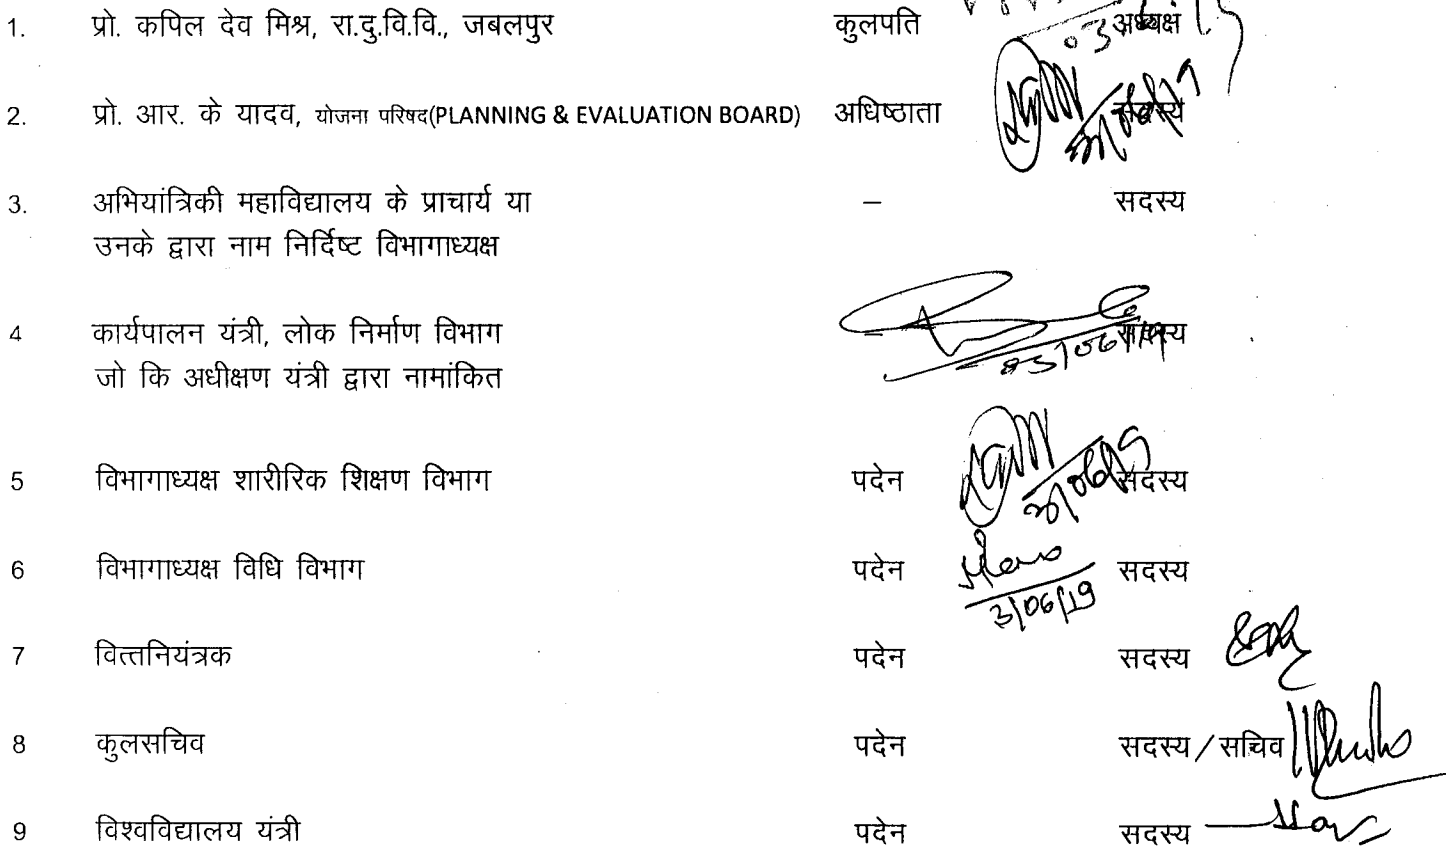 1. प्रो. कपिल देव मिश्र, रा.दु.वि.वि., जबलपुर कुलपति अध्यक्ष
2. प्रो. आर. के यादव, योजना परिषद(PLANNING & EVALUATION BOARD) अधिष्ठाता सदस्य
3. अभियांत्रिकी महाविद्यालय के प्राचार्य या – सदस्य
उनके द्वारा नाम निर्दिष्ट विभागाध्यक्ष
4 कार्यपालन यंत्री, लोक निर्माण विभाग – सदस्य
03/06/19
जो कि अधीक्षण यंत्री द्वारा नामांकित
5 विभागाध्यक्ष शारीरिक शिक्षण विभाग पदेन सदस्य
6 विभागाध्यक्ष विधि विभाग पदेन सदस्य
3/06/19
7 वित्तनियंत्रक पदेन सदस्य
8 कुलसचिव पदेन सदस्य / सचिव
9 विश्वविद्यालय यंत्री पदेन सदस्य